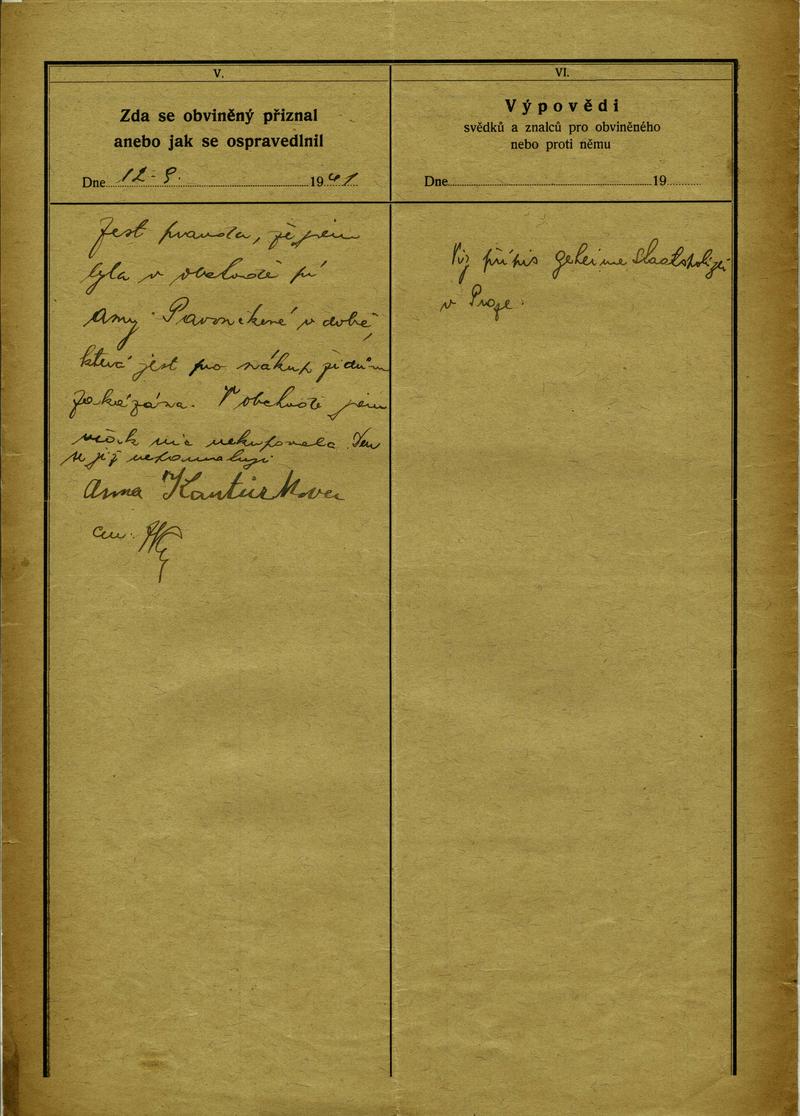 V.
Zda se obviněný přiznal
anebo jak se ospravedlnil
Dne 12-9. 1941
Jest pravda, že jsem
byla v obchodě pí
Any v době,
která jest pro nákup židům
zakázána. V obchodě jsem
však nic nekupovala
Anna Kantůrkova
VI.
Výpovědi
svědků a znalců pro obviněného
nebo proti němu
Dne 19
Viz přípis geheime Staatspolizei
v Praze.